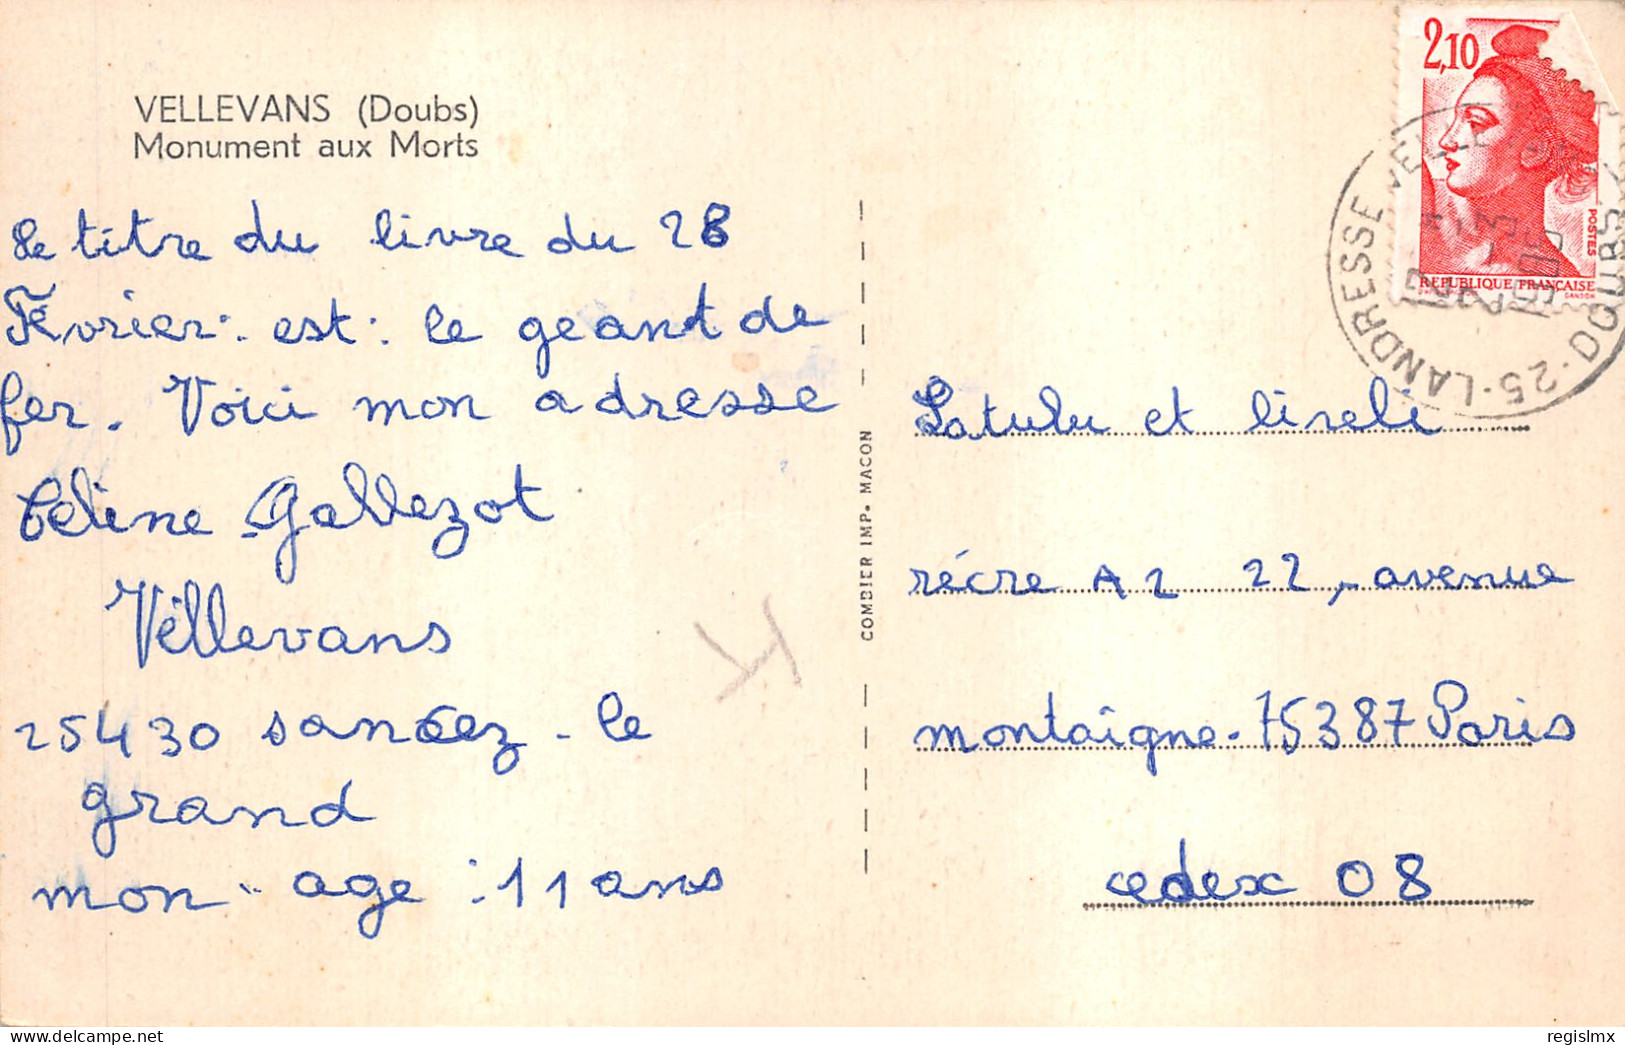 VELLEVANS (Doubs)
Monument aux Morts
Le titre du livre du 28
Février: est: le geant de
fer. Voici mon adresse
Céline Gallezot
Véllevans
25430 sancez - le
grand
mon age : 11 ans
COMBIER IMP. MACON
2,10
POSTES
REPUBLIQUE FRANÇAISE
GANDON
25-LANDRESSE DOUBS
Latulu et lireli
récre A2 22, avenue
montaigne. 75387 Paris
cedex 08
delcampe.net
regislmx